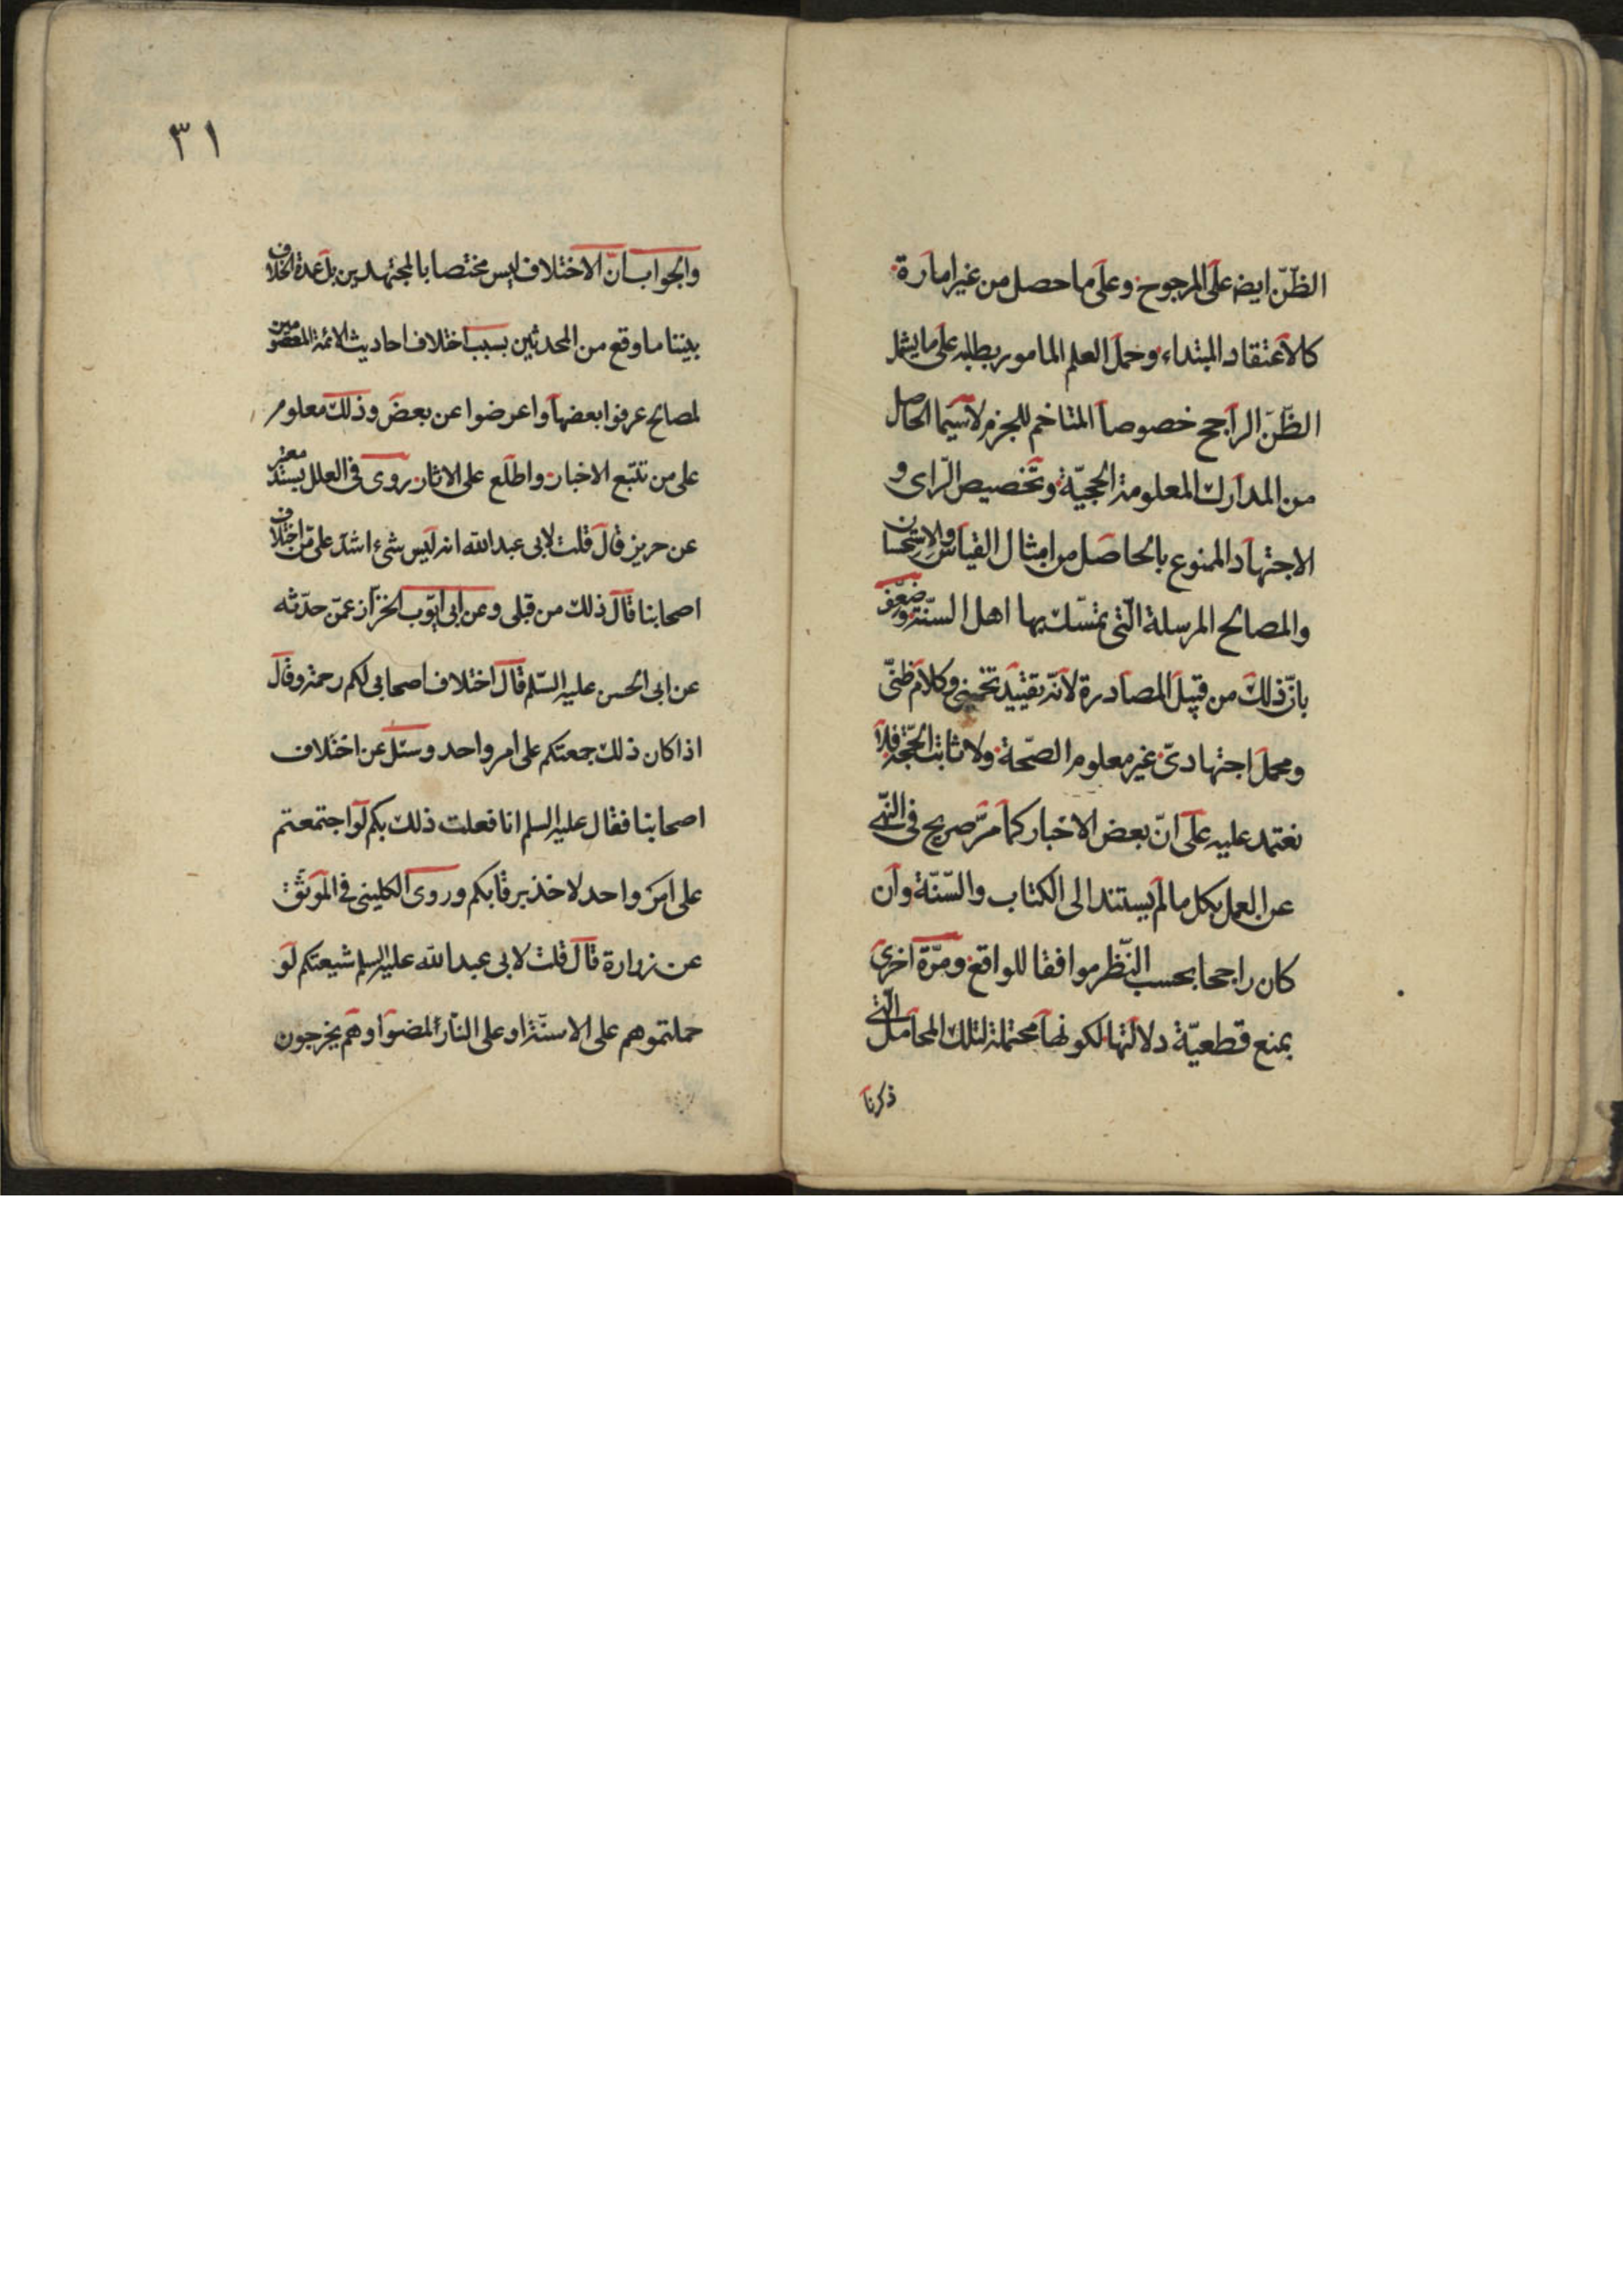 الظّنّ ايضا على المرجوح وعلى ما حصل من غير امارة
كالاعتقاد المبتداء وحمل العلم المامور بطلبه على ما يشمل
الظّنّ الراجح خصوصا المتاخم للجزم لا سيّما الحاصل
من المدارك المعلومة الحجيّة وتخصيص الرّاى و
الاجتهاد الممنوع بالحاصل من امثال القياس والاستحسان
والمصالح المرسلة الّتى تمسّك بها اهل السنّة وضعّف
بانّ ذلك من قبيل المصادرة لانّه تقييد تخمينى وكلام ظنّى
ومحمل اجتهادىّ غير معلوم الصّحة ولا ثابت الحجّة فلا
نعتمد عليه على انّ بعض الاخبار كما مرّ صريح فى النّهى
عن العمل بكل ما لم يستند الى الكتاب والسّنّة وان
كان راجحا بحسب النّظر موافقا للواقع ومرّة اخرى
بمنع قطعيّة دلالتها لكونها محتملة لتلك المحامل الّتى
ذكرنا
٣١
والجواب انّ الاختلاف ليس مختصا بالمجتهدين بل عمدة الخلاف
بيننا ما وقع من المحدثين بسبب اختلاف احاديث الائمة المعصومين
لمصالح عرفوا بعضها واعرضوا عن بعض وذلك معلوم
على من تتبّع الاخبار واطلع على الاثار روى فى العلل بسند معتبر
عن حريز قال قلت لابى عبد الله انه ليس شئ اشدّ علىّ من اختلاف
اصحابنا قال ذلك من قبلى وعن ابى ايّوب الخزاز عمّن حدّثه
عن ابى الحسن عليه السّلم قال اختلاف اصحابى لكم رحمة وقال
اذا كان ذلك جمعتكم على امر واحد وسئل عن اختلاف
اصحابنا فقال عليه السلم انا فعلت ذلك بكم لو اجتمعتم
على امر واحد لاخذ برقابكم وروى الكلينى فى الموثّق
عن زرارة قال قلت لابى عبد الله عليه السلم شيعتكم لو
حملتموهم على الاسنّة او على النّار لمضوا وهم يخرجون